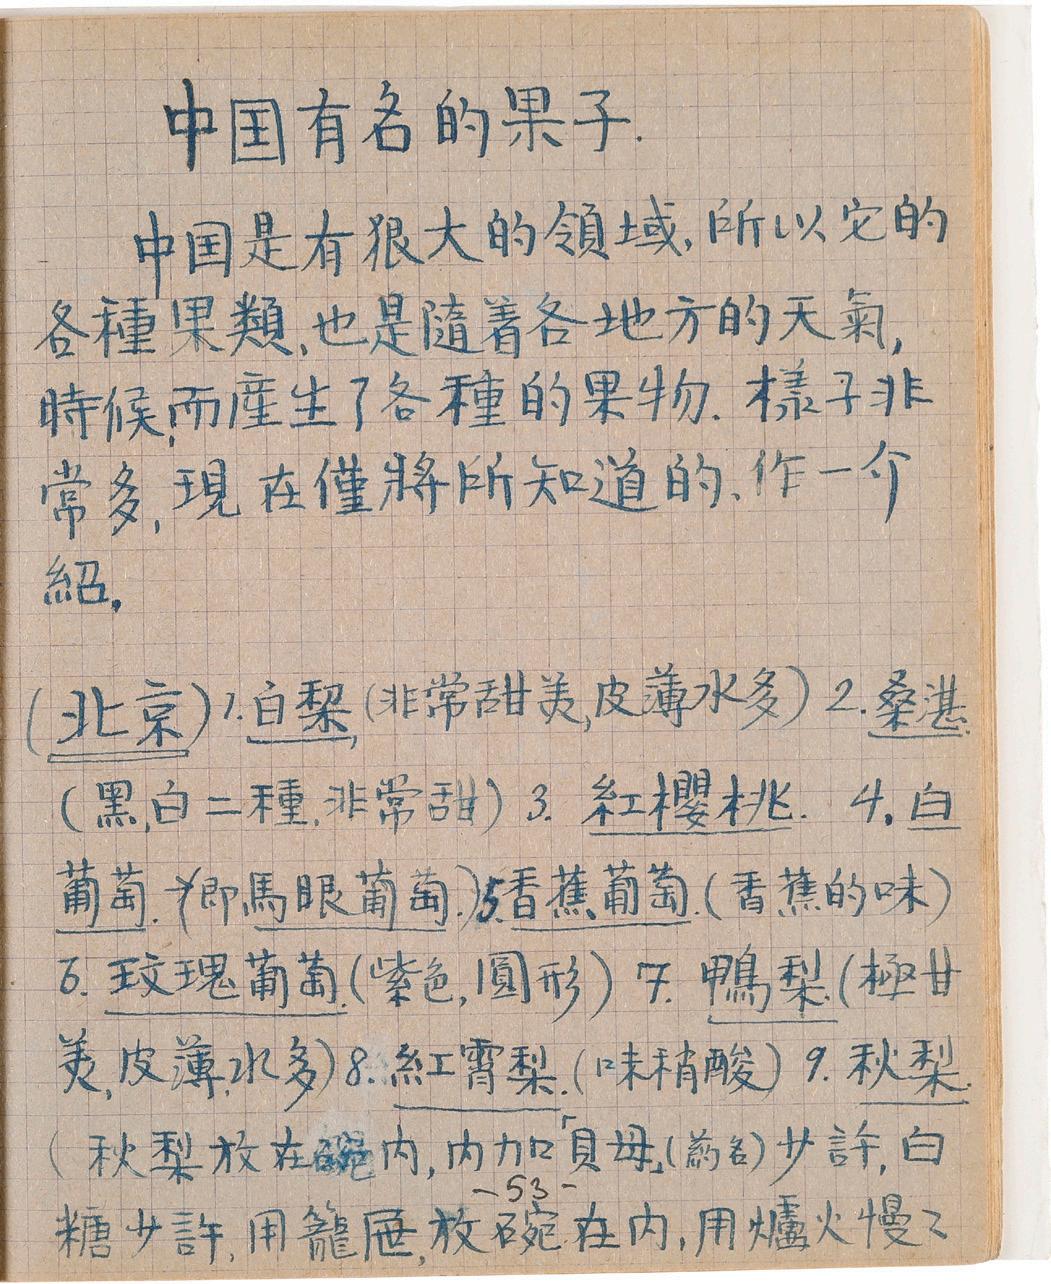 中国有名的果子.
中国是有狠大的領域,所以它的
各種果類,也是隨着各地方的天氣,
時候,而産生了各種的果物.樣子非
常多,現在僅將所知道的、作一介
紹,
(北京)1.白梨,(非常甜美,皮薄水多) 2.桑湛.
(黑,白二種,非常甜) 3. 紅櫻桃. 4.白
葡萄.(即馬眼葡萄.)5.香蕉葡萄.(香蕉的味)
6. 玟瑰葡萄.(紫色,圓形) 7. 鴨梨.(極甘
美,皮薄,水多)8.紅霄梨.(味稍酸) 9.秋梨.
(秋梨放在碗内,内加「貝母」(葯名)少許,白
-53-
糖少許,用籠屉,放碗在内,用爐火慢〻